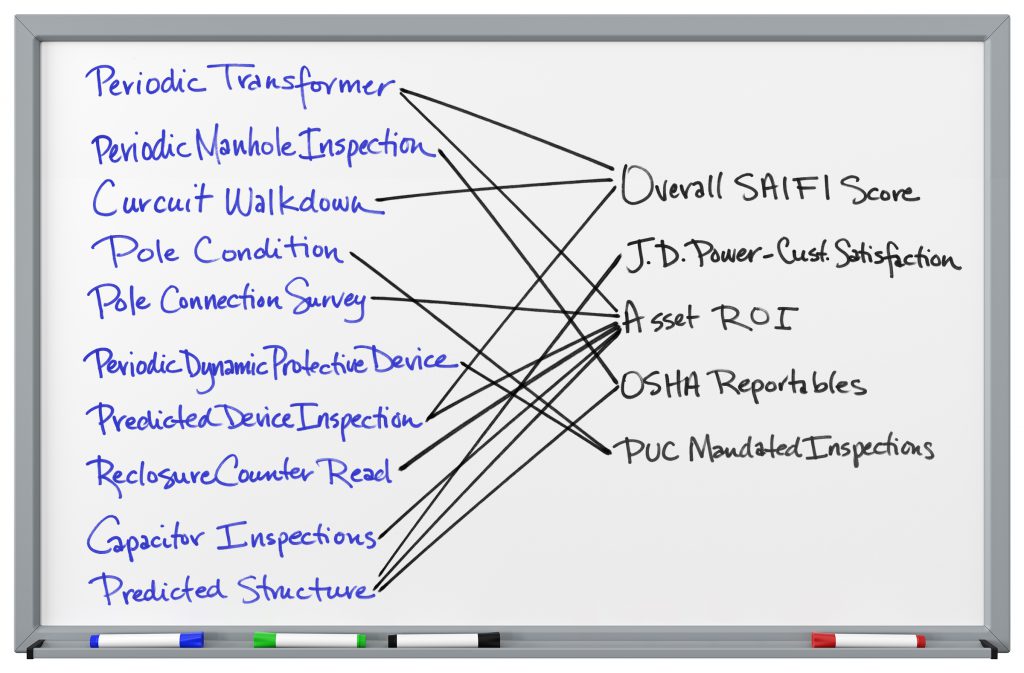 Periodic Transformer
Periodic Manhole Inspection
Curcuit Walkdown
Pole Condition
Pole Connection Survey
Periodic Dynamic Protective Device
Predicted Device Inspection
Reclosure Counter Read
Capacitor Inspections
Predicted Structure
Overall SAIFI Score
J.D. Power-Cust. Satisfaction
Asset ROI
OSHA Reportables
PUC Mandated Inspections